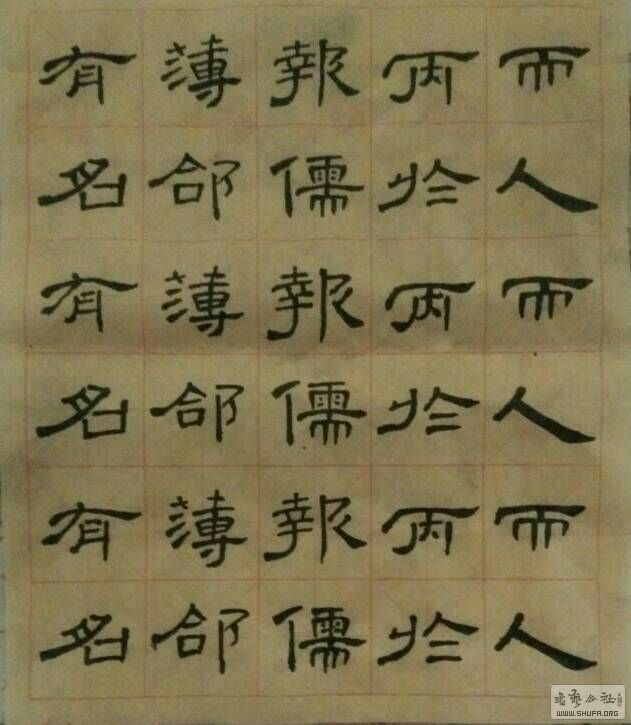 而人而人而人
丙於丙於丙於
報儒報儒報儒
薄郃薄郃薄郃
有名有名有名
書藝公社
WWW.SHUFA.ORG